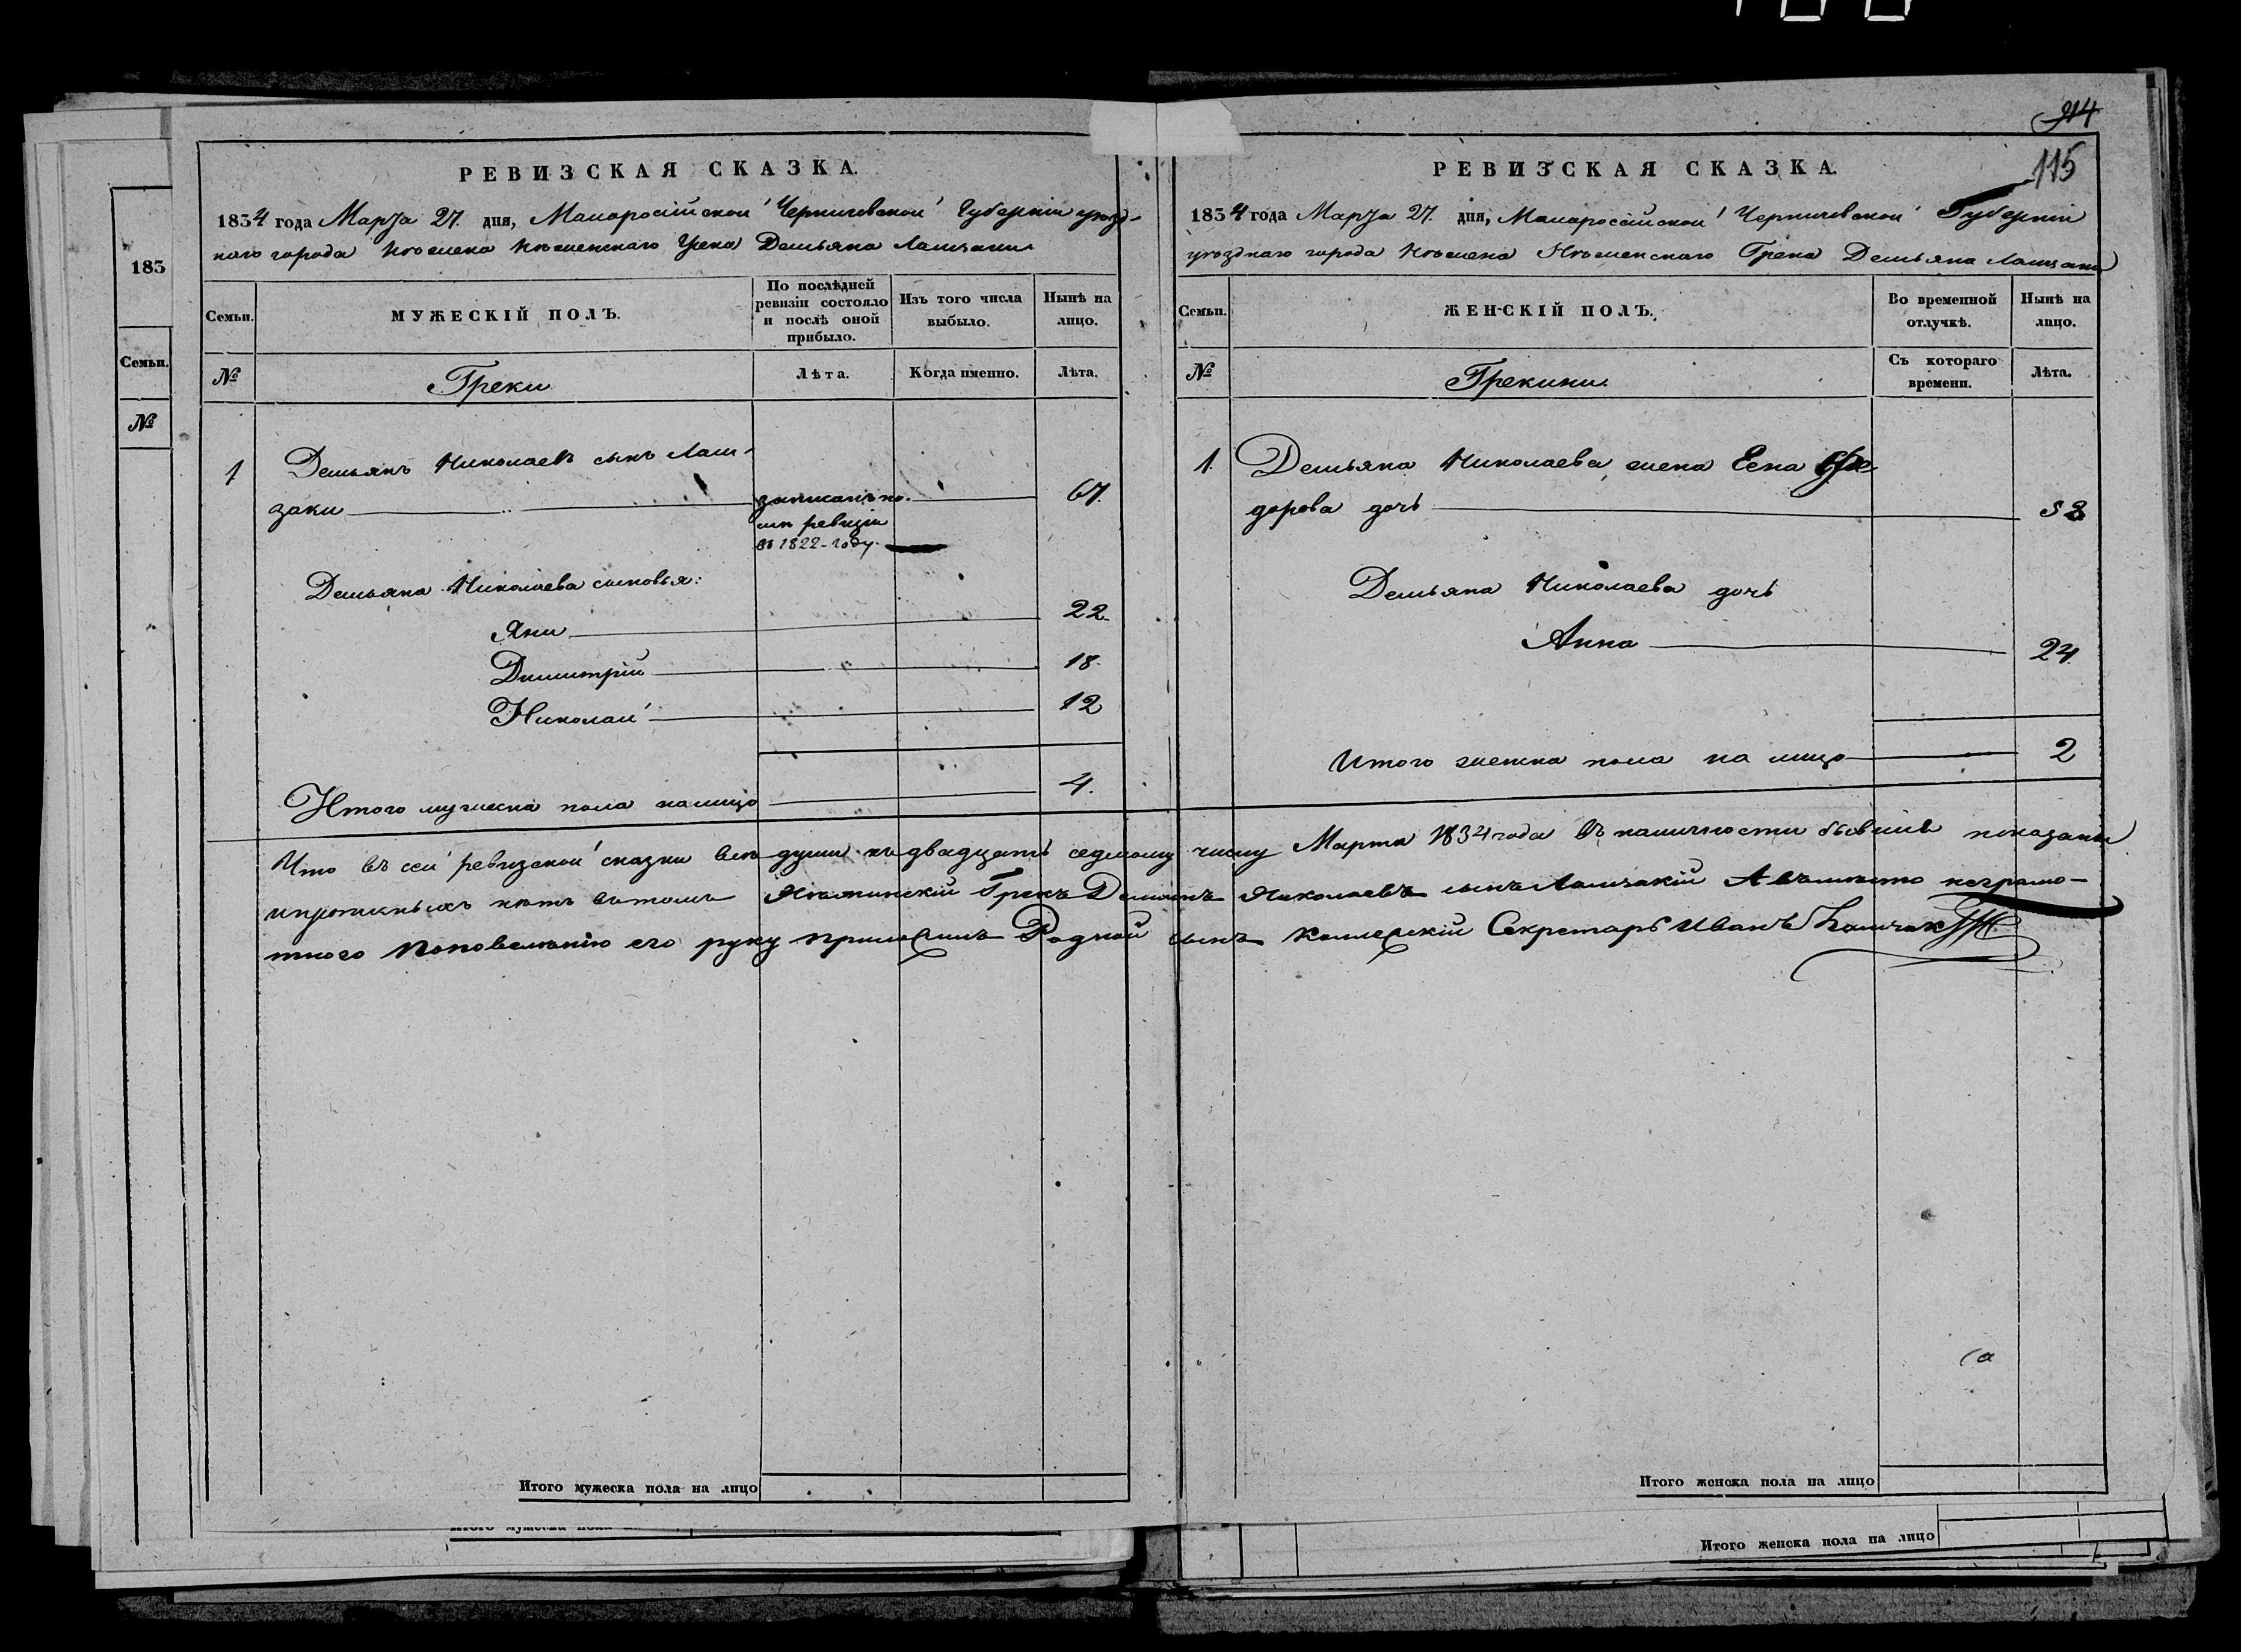 914
115
183
Семьи.
№
РЕВИЗСКАЯ СКАЗКА.
1834 года Марта 27. дня, Малоросійской Черниговской Губерніи уезд-
наго города Нѣжена Нѣженскаго Грека Демьяна
Семьи.
МУЖЕСКІЙ ПОЛЪ.
По послѣдней ревизіи состояло и послѣ оной прибыло.
Изъ того числа выбыло.
Нынѣ на лицо.
№
Греки
Лѣта.
Когда именно.
Лѣта.
1
Демьянъ Николаевъ сынъ Лам-
заки
записанъ по-
слѣ ревизіи
въ 1822-году.
67.
Демьяна Николаева сыновья:
Яни 22.
Димитрій 18.
Николай 12
Итого мужеска пола налицо 4.
РЕВИЗСКАЯ СКАЗКА.
1834 года Марта 27. дня, Малоросійской Черниговской Губерніи
уезднаго города Нѣжена Нѣженскаго Грека Демьяна
Семьи.
ЖЕНСКІЙ ПОЛЪ.
Во временной отлучкѣ.
Нынѣ на лицо.
№
Грекини.
Съ котораго времени.
Лѣта.
1. Демьяна Николаева жена Еена Фе-
дорова дочь 52
Демьяна Николаева дочь
Анна 24.
Итого женска пола на лицо 2
Что въ сей ревизской сказки всѣ души къ двадцать седмому числу Марта 1834 года въ наличности бывшіе показаны
и нѣтъ въ томъ Нѣжинскій Грекъ Николаевъ сынъ А вместо неграмо-
тного поповеленію его руку приложилъ Родной сынъ Коллежскій Секретарь Иванъ
Итого мужеска пола на лицо
Итого женска пола на лицо
Итого женска пола на лицо